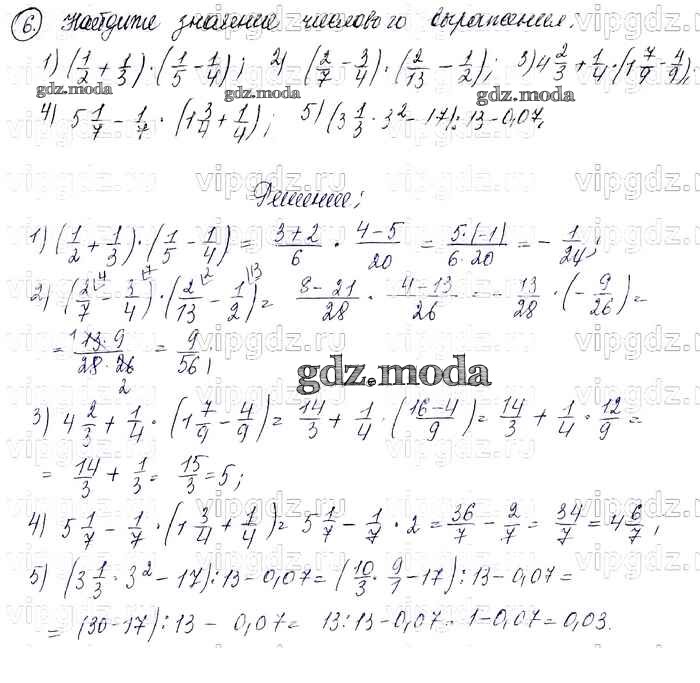 6. Найдите значение числового выражения:
1) (1/2 + 1/3) · (1/5 − 1/4); 2) (2/7 − 3/4) · (2/13 − 1/2); 3) 4 2/3 + 1/4 · (1 7/9 − 4/9);
gdz.moda gdz.moda gdz.moda
4) 5 1/7 − 1/7 · (1 3/4 + 1/4); 5) (3 1/3 · 3² − 17) : 13 − 0,07.
Решение:
1) (1/2 + 1/3) · (1/5 − 1/4) = (3+2)/6 · (4−5)/20 = 5·(−1)/(6·20) = − 1/24;
2) (2/7 − 3/4) · (2/13 − 1/2) = (8−21)/28 · (4−13)/26 = − 13/28 · (− 9/26) =
= (13·9)/(28·26) = 9/56;
gdz.moda
3) 4 2/3 + 1/4 · (1 7/9 − 4/9) = 14/3 + 1/4 · ((16−4)/9) = 14/3 + 1/4 · 12/9 =
= 14/3 + 1/3 = 15/3 = 5;
4) 5 1/7 − 1/7 · (1 3/4 + 1/4) = 5 1/7 − 1/7 · 2 = 36/7 − 2/7 = 34/7 = 4 6/7;
5) (3 1/3 · 3² − 17) : 13 − 0,07 = (10/3 · 9/1 − 17) : 13 − 0,07 =
= (30−17) : 13 − 0,07 = 13 : 13 − 0,07 = 1 − 0,07 = 0,03.
vipgdz.ru